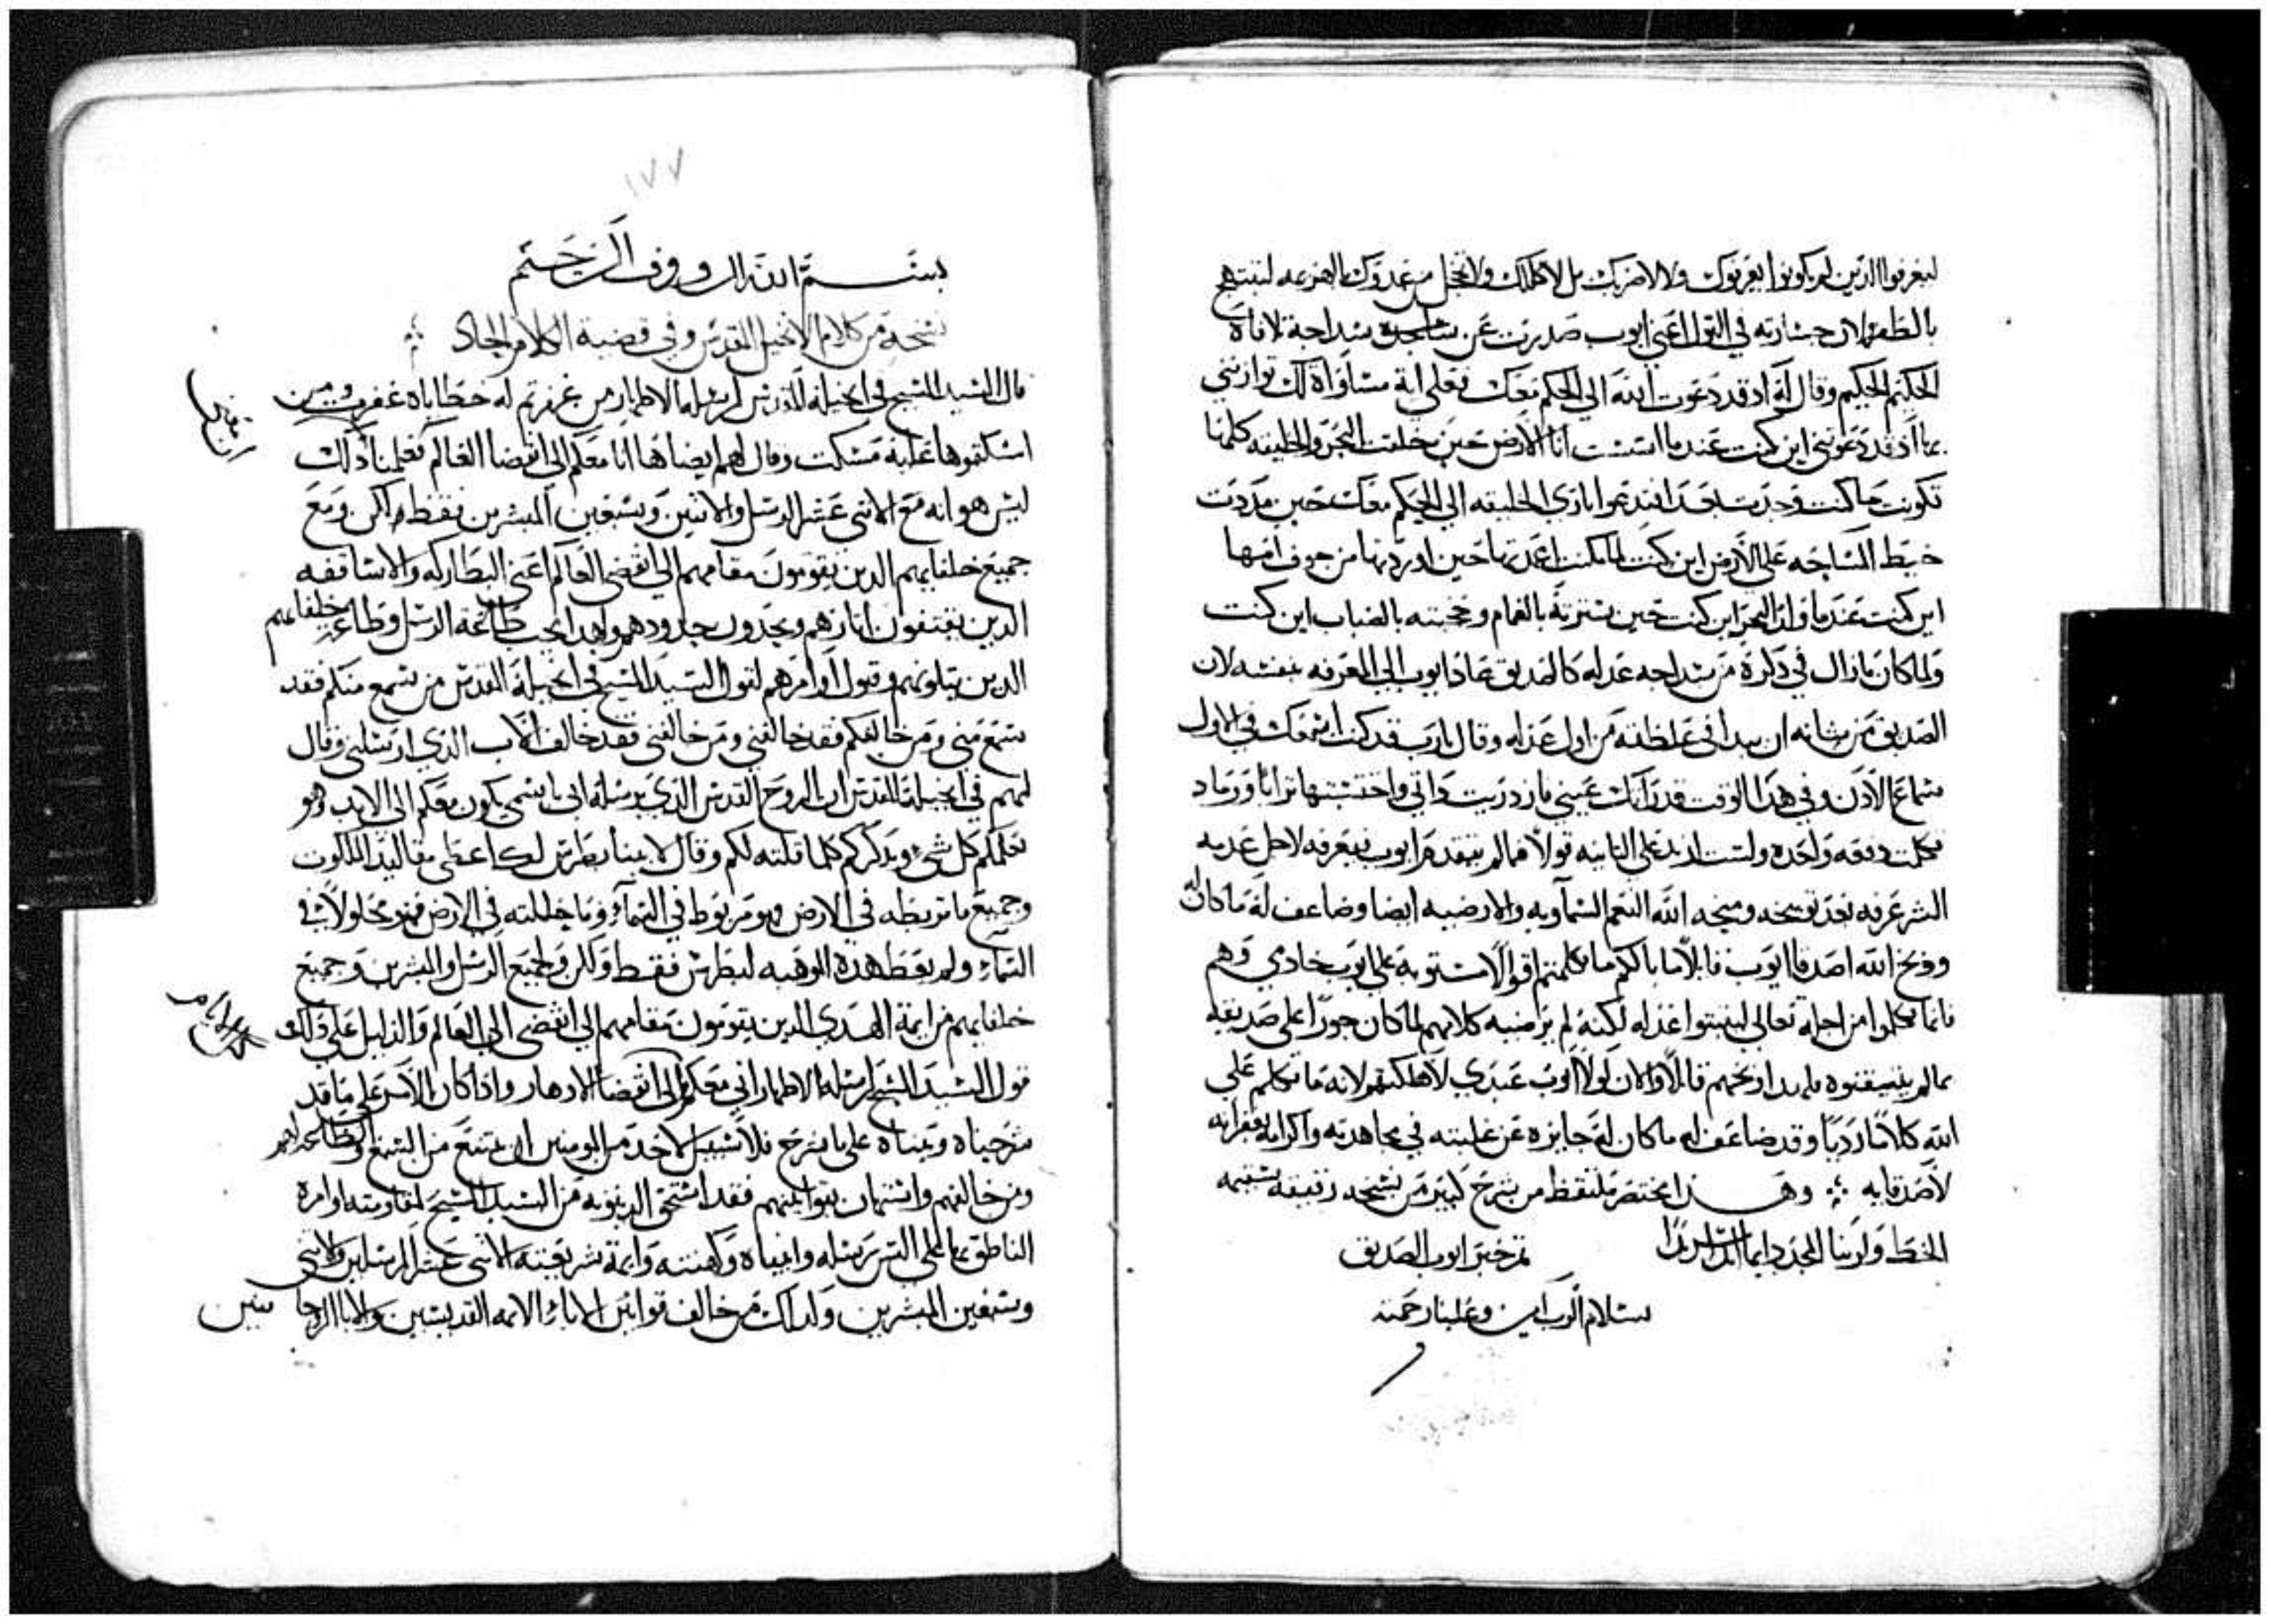 ليعرفوا الذين لم يكونوا يعرفوك ولا لاضربك بل لاكللك ولاتخجل من عدوك بالهزيمه لتبتهج
بالظفر لان جسارته في القول اعني ايوب صدرت عن سداجة تلافاه
الحكيم الحكيم وقال له اد قد دعوت الله الي الحكم معك فعلي اية مساواة لك توازنني
بها اد قد دعوتني اين كنت عند ما اسست انا الارض حين خلقت البحر والخليقه كلها
تكونت ما كنت وجدت بعد افتدعوا باري الخليقه الي الحكم معك حين مددت
خيط المساحه علي الارض اين كنت لما كنت اعددتها حين اوردتها من جوف امها
اين كنت عند ما البحر اين كنت حين سترته بالغمام وحجبته بالضباب اين كنت
ولما كان مازال في ذكره من سداجه عدله كالصديق عاد ايوب الي المعرفه بنفسه لان
الصديق من شانه ان يبدا في غلطته من اول عدله وقال يارب قد كنت اسمعك في الاول
سماع الادن وفي هدا الوقت قد رايتك عيني فازدريت داتي واحتسبتها ترابا ورماد
تكلمت دفعه واحده ولست ازيد علي الثانيه قولا فما لم يتقدم ايوب فيعرفه لاجل عدبه
الشر عرفه بعد توبيخه ومنحه الله النعم السماويه والارضيه ايضا وضاعف له ما كان له
ووبخ الله اصدقا ايوب قايلا ما بالكم ما تكلمتم اقوالا مستويه علي ايوب خادمي وهم
فانما تكلموا من اجله تعالي ليثبتوا عدله لكنه لم يرضيه كلامهم لما كان جورا علي صديقه
بما لم يتيقنوه فلهدا وبخهم قايلا والان لولا ايوب عبدي لاهلكتكم لانه ما تكلم علي
الله كلاما رديا وقد ضاعف له ما كان له جايزه عن غلبته في مجاهدته واكرامه بغفرانه
لاصدقايه ؞ وهدا مختصر ملتقط من شرح كبير من نسخه دقيقه سقيمه
الخط ولربنا المجد دايما ابدا سرمدا تم خبر ايوب الصديق
بسلام الرب امين وعلينا رحمته
١٧٧
بسم الله الرووف الرحيم
نسخة من كلام الانجيل المقدس وفي قضية الكلام الجاد ؞
قال السيد المسيح في انجيله المقدس لرسله الاطهار من غفرتم له خطاياه غفرت ومن
امسكتموها عليه مسكت وقال لهم ايضا ها انا معكم الي انقضا العالم فعلمنا دلك
ليس هو انه مع الاثني عشر الرسل والاثنين وسبعين المبشرين فقط لاكن ومع
جميع خلفايهم الدين يقومون مقامهم الي انقضي العالم اعني البطاركه والاساقفه
الدين يقتفون اثارهم ويحدون حدودهم ولهدا يجب طاعة الرسل وطاعة خلفاهم
الدين يتلونهم وقبول اوامرهم لقول السيد المسيح في انجيله المقدس من سمع منكم فقد
سمع مني ومن خالفكم فقد خالفني ومن خالفني فقد خالف الاب الدي ارسلني وقال
لهم في انجيله المقدس ان الروح القدس الدي يرسله ابي باسمي يكون معكم الي الابد وهو
يعلمكم كل شي ويدكركم كلما قلته لكم وقال لابينا بطرس لك اعطي مقاليد الملكوت
وجميع ما تربطه في الارض فهو مربوط في السماء وما حللته في الارض فهو محلولا في
السماء ولم يعط هده الوهبه لبطرس فقط ولكن ولجميع الرسل والمبشرين وجميع
خلفايهم من ايمة الهدي الدين يقومون مقامهم الي انقضي العالم والدليل علي دلك هو
قول السيد المسيح لرسله الاطهار اني معكم الي انقضا الادهار وادا كان الامر علي ما قد
شرحناه وبيناه علي ما يشرح فلا سبيل لاحد من المومنين ان يمتنع من السمع والطاعه لهم
ومن خالفهم واستهان بقوانينهم فقد استحق الدينونه من السيد المسيح لمقاومته اوامره
الناطق بها علي السن رسله وانبياه وكهنته وايمة شريعته الاثني عشر المرسلين والاثني
وسبعين المبشرين ولدلك من خالف قوانين الاباء الايمه القديسين والابا الروحانيين